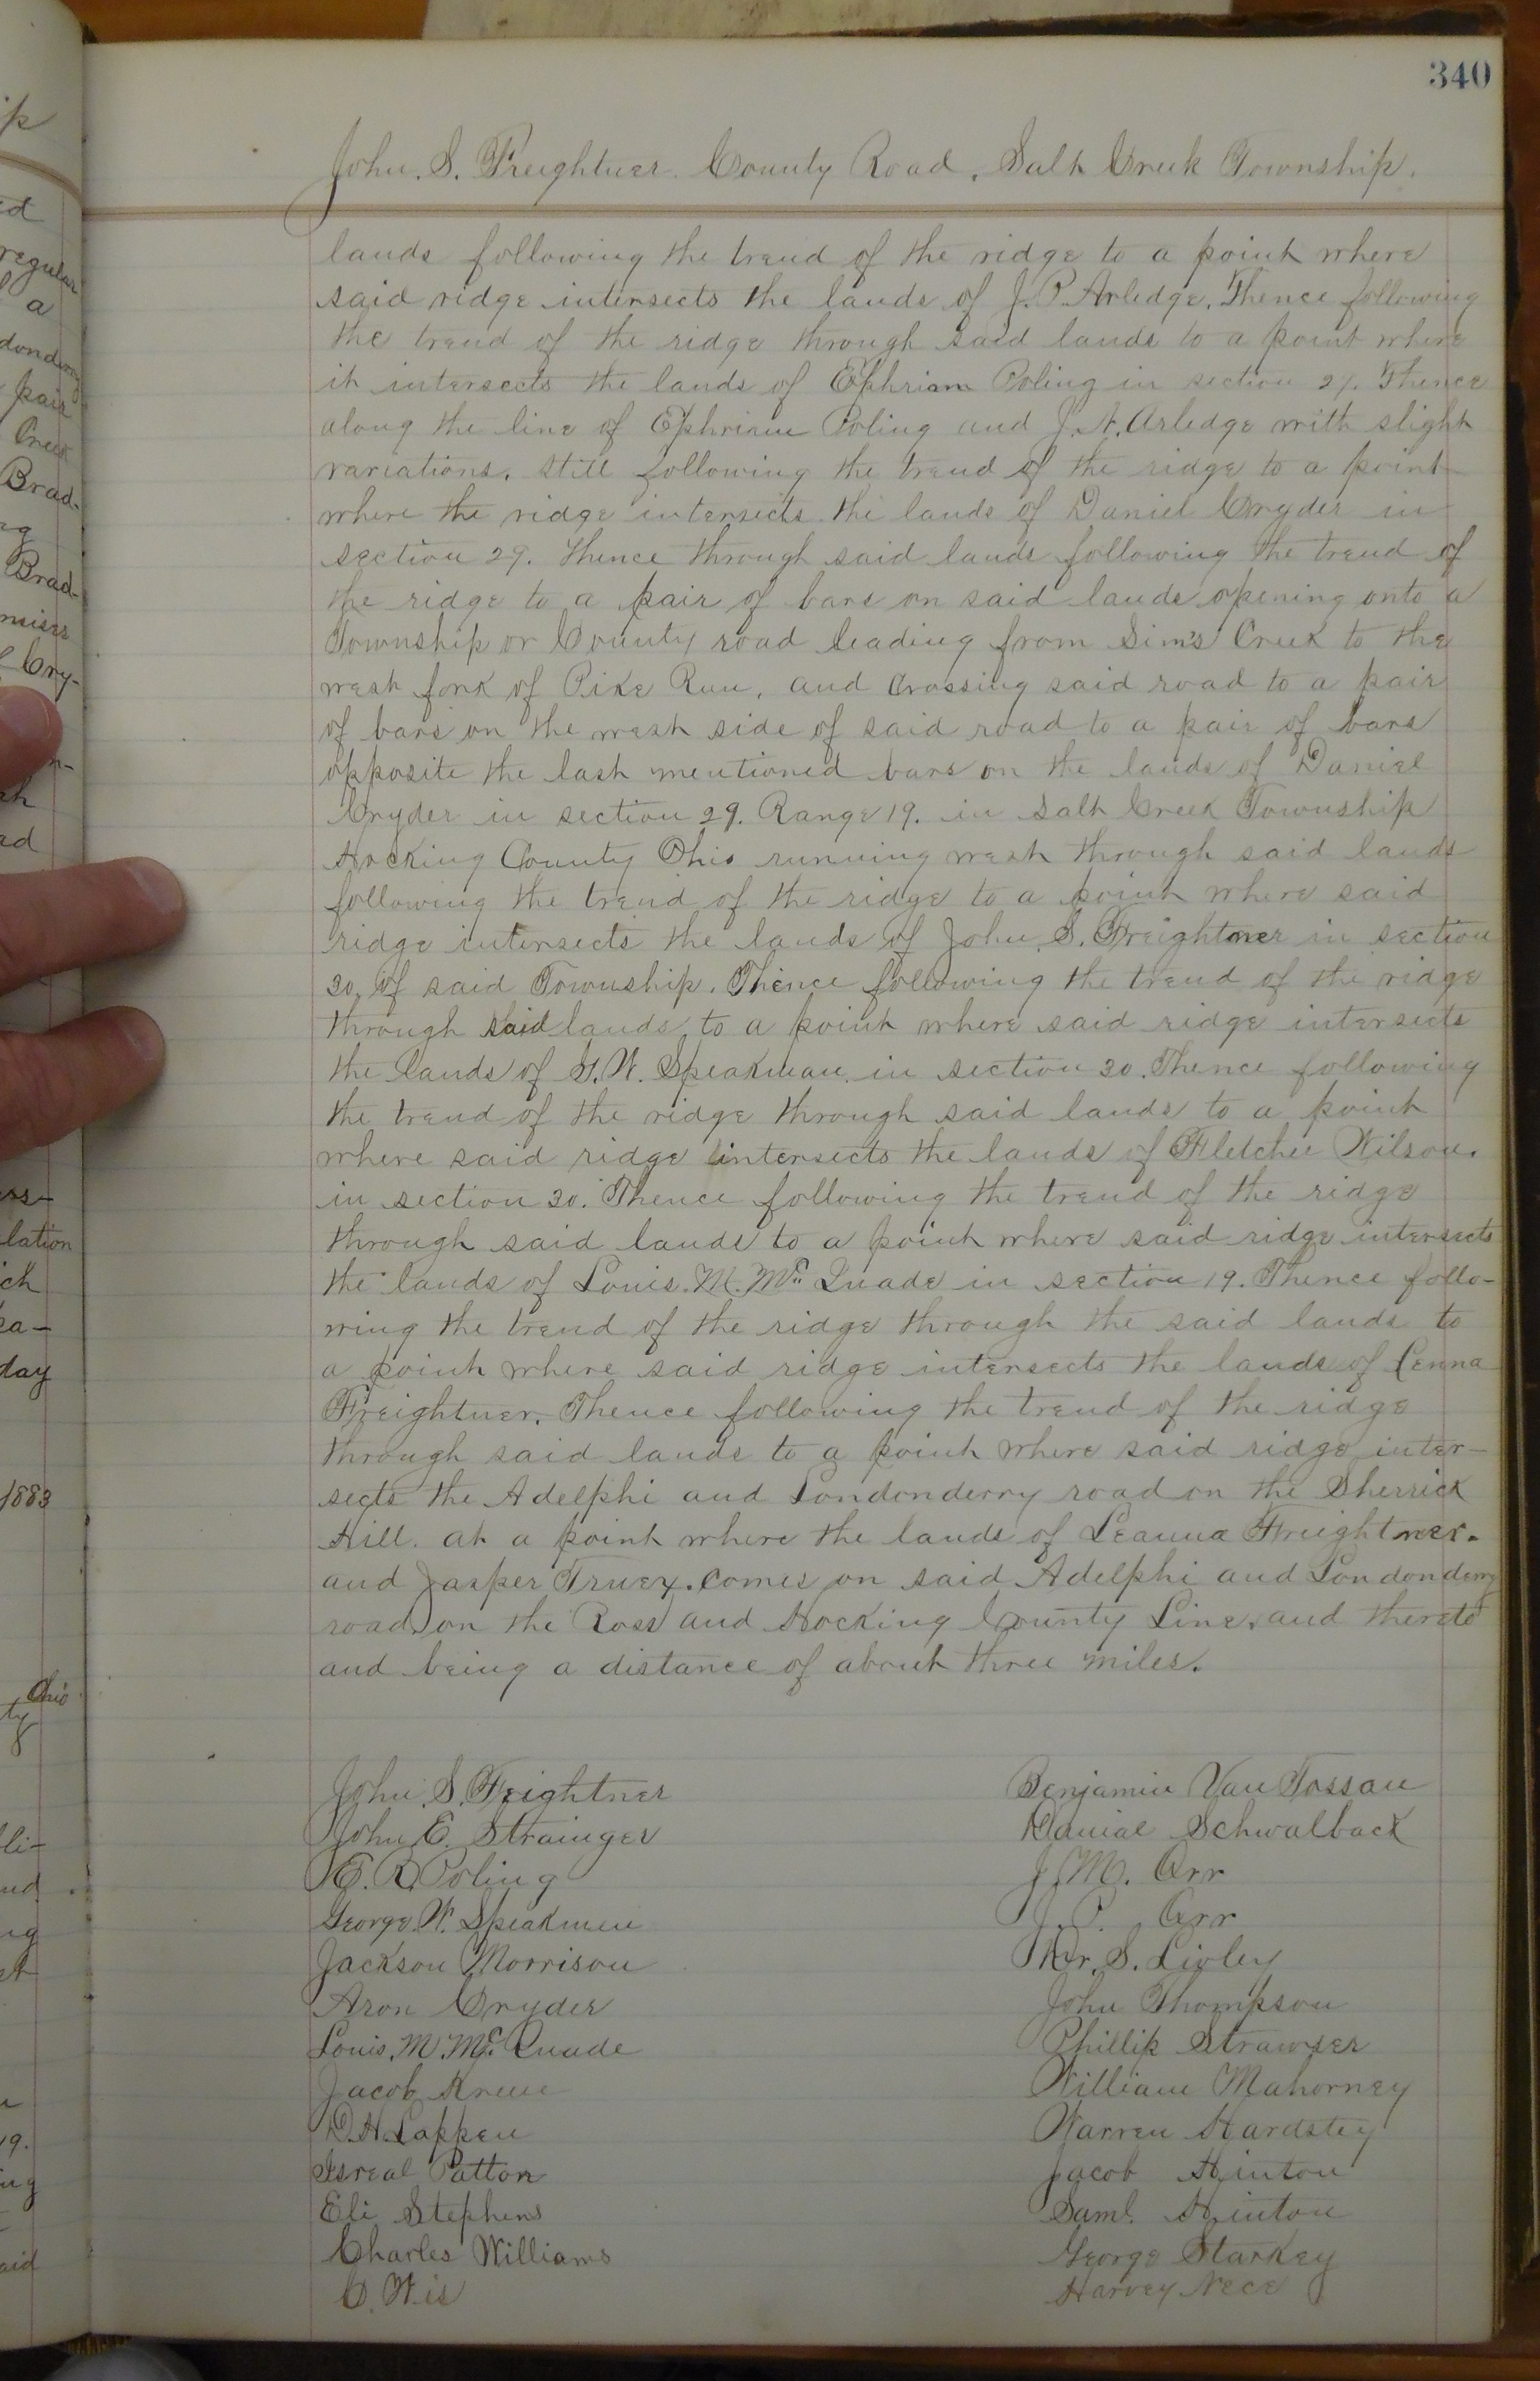 340
John. S. Freightner. County Road, Salt Creek Township.
lands following the trend of the ridge to a point where
said ridge intersects the lands of J. P. Arledge. Thence following
the trend of the ridge through said lands to a point where
it intersects the lands of Ephriam Poling in section 21. Thence
along the line of Ephriam Poling and J. A. Arledge with slight
variations. still following the trend of the ridge to a point
where the ridge intersects the lands of Daniel Cryder in
section 29. thence through said lands following the trend of
the ridge to a pair of bars on said lands opening onto a
Township or County road leading from Sim's Creek to the
west fork of Pike Run, and crossing said road to a pair
of bars on the west side of said road to a pair of bars
opposite the last mentioned bars on the lands of Daniel
Cryder in section 29. Range 19. in Salt Creek Township
Hocking County Ohio running west through said lands
following the trend of the ridge to a point where said
ridge intersects the lands of John. S. Freightner in section
30. of said Township. Thence following the trend of the ridge
through said lands, to a point where said ridge intersects
the lands of G. W. Speakman in section 30. Thence following
the trend of the ridge through said lands to a point
where said ridge intersects the lands of Fletcher Wilson.
in section 30. Thence following the trend of the ridge
through said lands to a point where said ridge intersects
the lands of Louis. M. Mc Quade in section 19. Thence follo-
wing the trend of the ridge through the said lands to
a point where said ridge intersects the lands of Lenna
Freightner. Thence following the trend of the ridge
through said lands to a point where said ridge inter-
sects the Adelphi and Londonderry road on the Sherrick
Hill. at a point where the lands of Leanna Freightner.
and Jasper Truex. comes on said Adelphi and Londonderry
road, on the Ross and Hocking County Line. and thereto
and being a distance of about three miles.
John. S. Feightner
Benjamin Van Tossan
John E. Strainger
Danial Schwalback
E. R. Poling
J. M. Orr
George. W. Speakmen
J. P. Orr
Jackson Morrison
Wr. S. Lioley
Aron Cryder
John Thompson
Louis. M. Mc. Quade
Phillip Strawser
Jacob
William Mahorney
D. H. Lappen
Warren Hardstey
Isreal Patton
Jacob Hinton
Eli Stephens
Saml. Hinton
Charles Williams
George Starkey
C. Wis
Harvey Nece